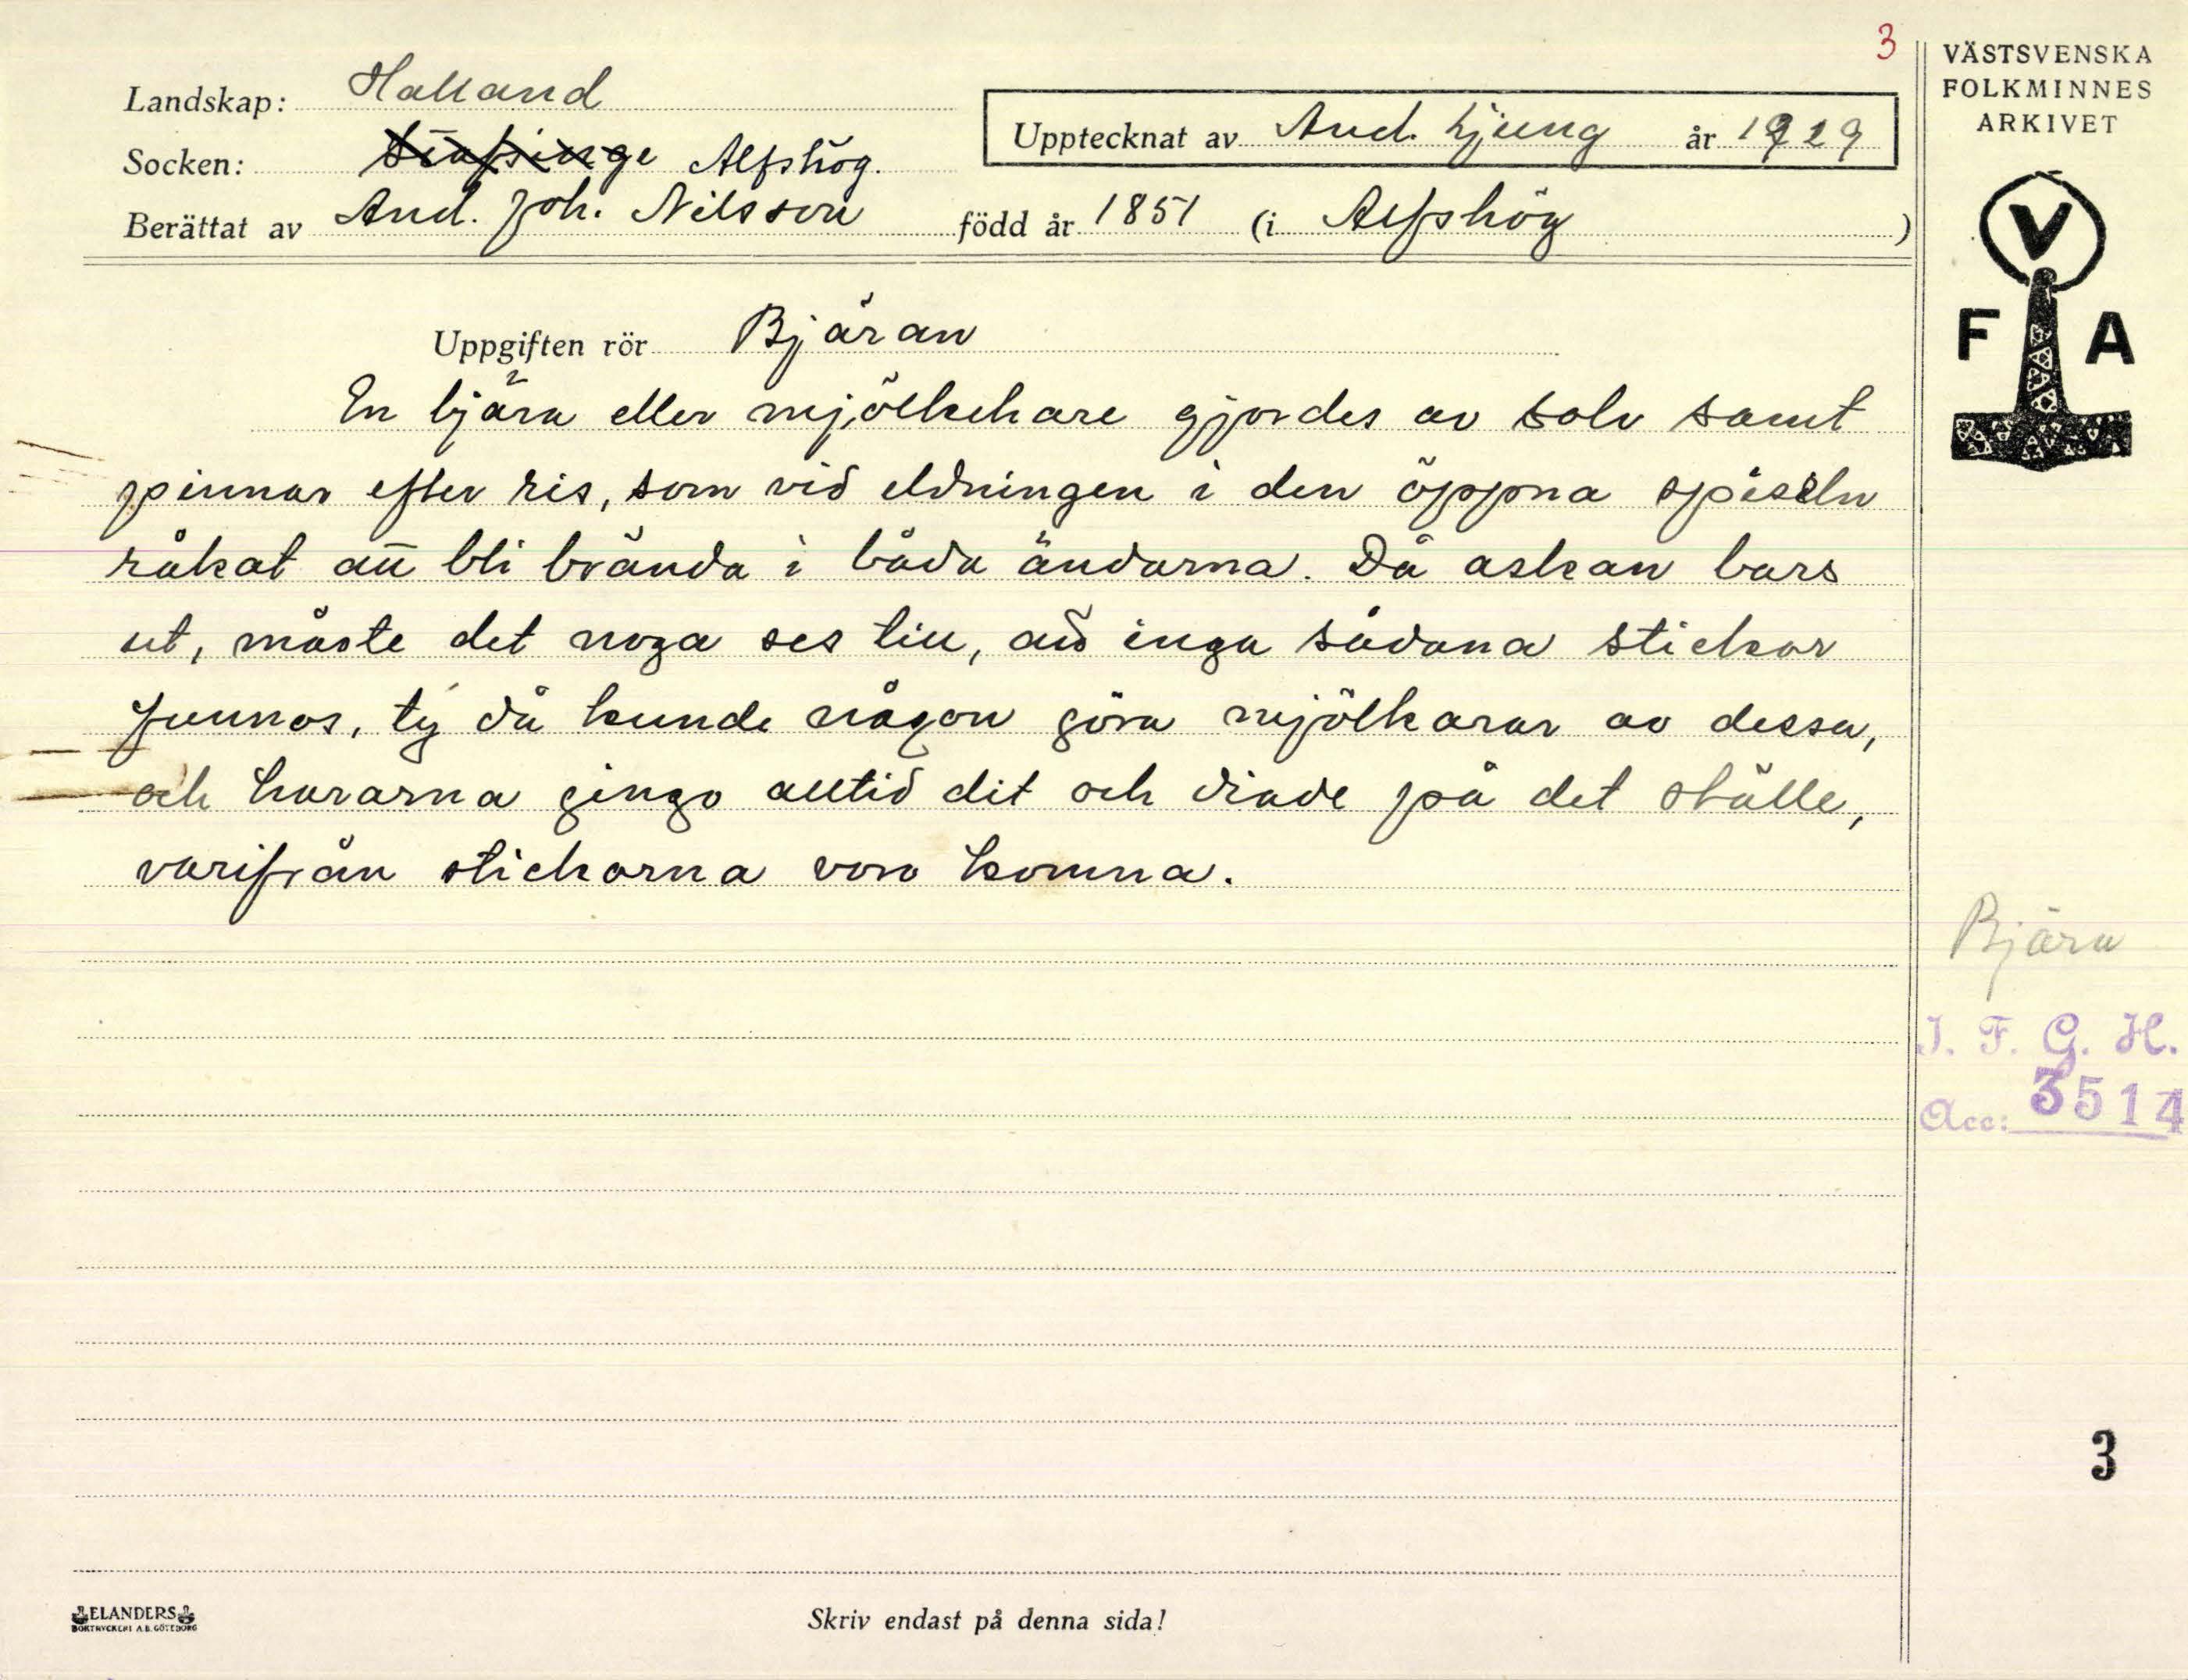 3
VÄSTSVENSKA
FOLKMINNES
ARKIVET
Landskap: Halland
Upptecknat av And. Ljung år 1929
Socken: Stafsinge Alfshög.
Berättat av And. Joh. Nilsson född år 1851 (i Alfshög )
V
F A
Uppgiften rör Bjäran
En bjära eller mjölkehare gjordes av solv samt
pinnar efter ris, som vid eldningen i den öppna spiseln
råkat att bli brända i båda ändarna. Då askan bars
ut, måste det noga ses till, att inga sådana stickor
funnos, ty då kunde någon göra mjölkarar av dessa,
och hararna gingo alltid dit och diade på det ställe,
varifrån stickorna voro komna.
Bjära
I. F. G. H.
Acc: 3514
3
ELANDERS
BOKTRYCKERI A.B. GÖTEBORG
Skriv endast på denna sida!